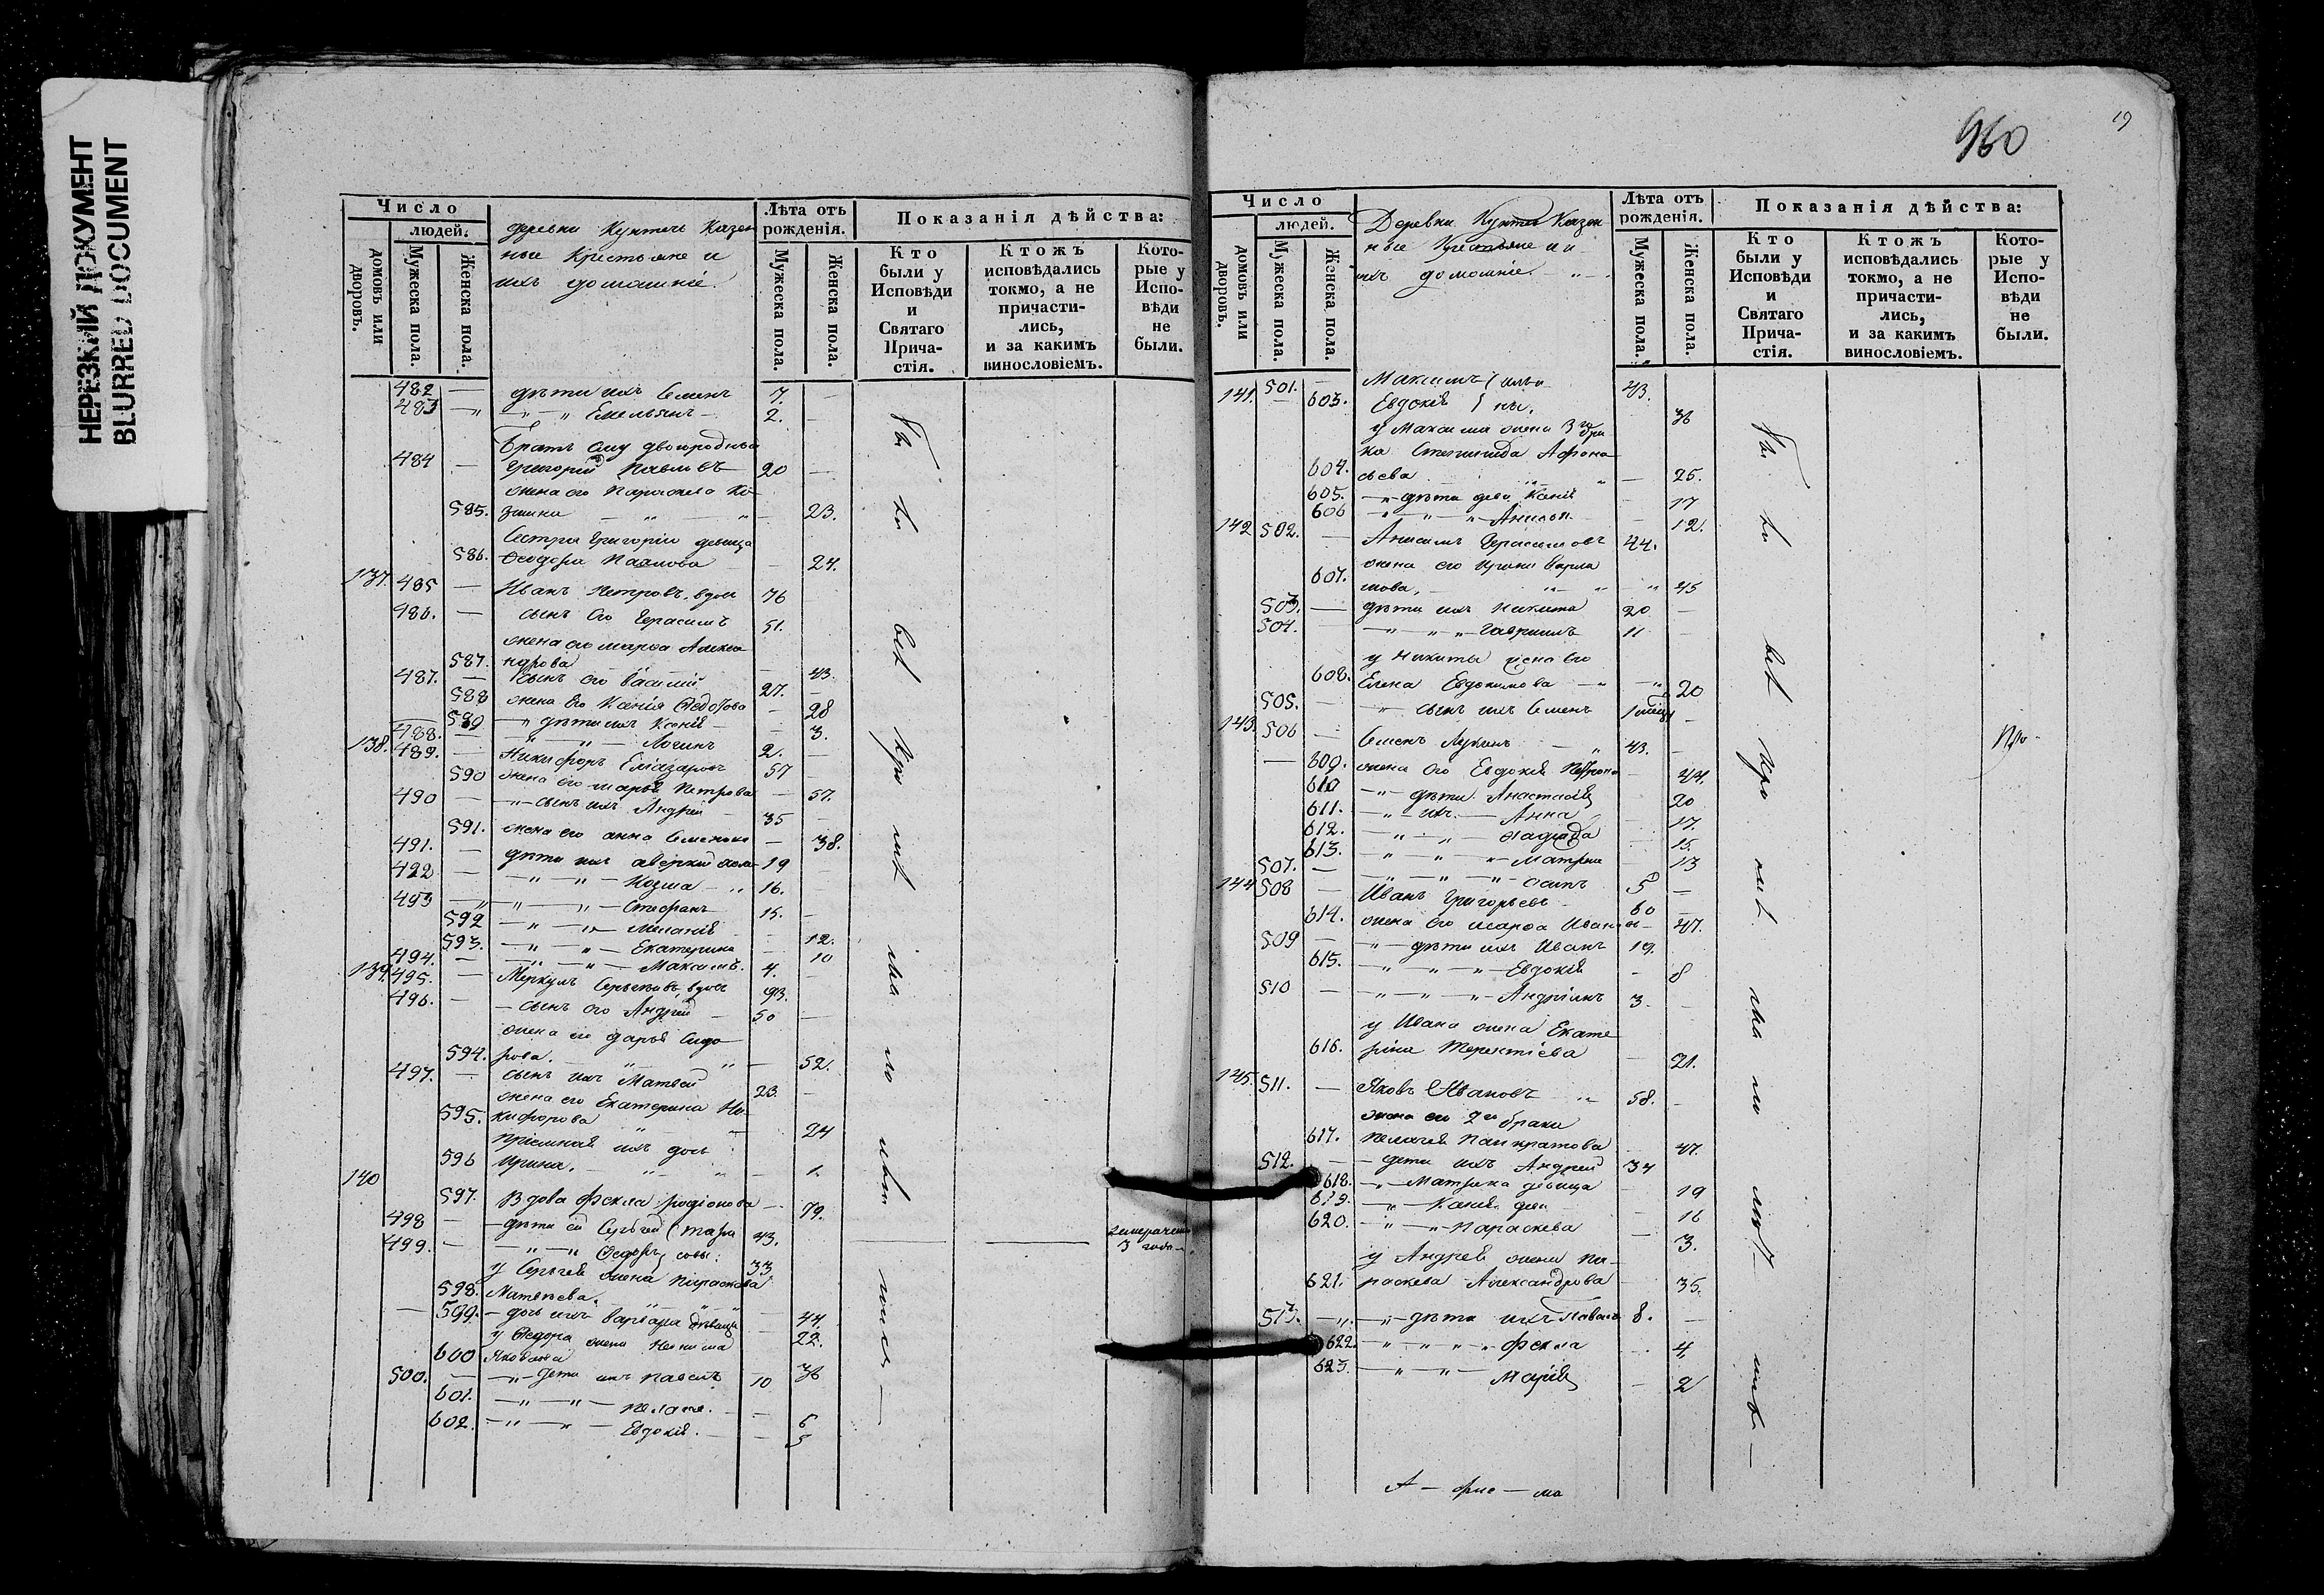 НЕРЕЗКИЙ ДОКУМЕНТ
BLURRED DOCUMENT
960
19
Число
людей.
домовъ или дворовъ.
Мужеска пола.
Женска пола.
деревни Казен
ные Крестьяне и
ихъ домашніе.
Лѣта отъ рожденія.
Мужеска пола.
Женска пола.
Показанія дѣйства:
Кто были у Исповѣди и Святаго Прича-стія.
Ктожъ исповѣдались токмо, а не причасти-лись, и за какимъ винословіемъ.
Кото-рые у Испо-вѣди не были.
482 — дѣти ихъ Семенъ 7. —
483 — " — " Емельянъ — 2. —
Братъ ему двоюродный
484 — Григорій Павловъ 20 —
жена его Параскева
585. — " — " — 23.
Сестра Григорія девица
586. Ѳеодора Павлова — 24.
137. 485 — Иванъ Петровъ. вдов 76
486. — сынъ его Герасимъ 51.
жена его Марѳа Алекса
587. ндрова — 43.
487. — сынъ его Василій 27. —
588 жена его Ксенія Ѳедорова — 28
589 — " дѣти ихъ Ксенія — 3.
488. — " — " — Логинъ 2. —
138. 489. — Никифоръ Елиазаровъ 57 —
590 жена его Марья Петрова — 57.
490 — " — сынъ ихъ Андрей 35 —
591. жена его Анна Семенова — 38.
491. — дѣти ихъ Аверкій 19 —
492 — " — " — Козма — " 16. —
493 — " — " — Стефанъ 15. —
592 — " — " — Меланія — 12.
593. — " — " — Екатерина — 10
494. — " — " — Максимъ. 4. —
139. 495. — Меркулъ Сергѣевъ вдов 93.
496. — сынъ его Андрей 50 —
жена его Дарья Сидо
594. рова. — " — " — 52.
497. — сынъ ихъ Матвей 23. —
жена его Екатерина Ни
595. кифорова — 24
пріемная ихъ дочь
596 Ирина. — " — " — 1.
140
597. Вдова Фекла Родіонова — 79.
498 — дѣти ея Сергѣй (Тара 43.
499. — " — " Ѳедоръ совы: 33
3 года
у Сергѣя жена Параскева
598. Матвѣева. — " — " — 44.
— 599. — дочь ихъ Варвара дѣвица 22.
у Ѳедора жена
600 Яковлева — 36
500. — " — дети ихъ Павелъ 10
601. — " — " — Пелагея. — 6
602. — " — " — Евдокія. — 5
Число
людей.
домовъ или дворовъ.
Мужеска пола.
Женска пола.
Деревни Казен
ные Крестьяне и
ихъ домашніе. — " —
Лѣта отъ рожденія.
Мужеска пола.
Женска пола.
Показанія дѣйства:
Кто были у Исповѣди и Святаго Прича-стія.
Ктожъ исповѣдались токмо, а не причасти-лись, и за какимъ винословіемъ.
Кото-рые у Испо-вѣди не были.
141. 501. — Максимъ 43.
— 603. Евдокія 36
у Максима жена 3го бра
ка Степанида Афона
604. сьева — " — 25.
605. — " дѣти дѣв. Ксенія — 17
606 — " — " — " — 12.
142 502. — Анисимъ Герасимовъ 44.
жена его Ирина Варла
607. мова, — " — " — " 45
503. — дѣти ихъ Никита 20 —
504. — " — " — " — Гавриилъ 11 —
у Никиты жена его
608. Елена Евдокимова — " — 20
505. — " сынъ ихъ Семенъ 1 —
143. 506 — Семенъ — " 43. —
— 609. жена его Евдокія Петрова — 44.
610 — " — дѣти Анастасія 20
611. — " — ихъ — Анна — 17.
612. — " — " — 15.
613. — " — " — " — Матрена 13
507. — " — " — " — Осипъ 5 —
144 508 — Иванъ Григорьевъ 60 —
614. жена его Марѳа Иванов — 47.
509 — " — дѣти ихъ Иванъ 19.
615. — " — " — " — Евдокія — 8
510 — " — " — " — Андріанъ 3 —
у Ивана жена Екате
616. рина Терентіева — 21.
145. 511. — Яковъ Ивановъ — " 58. —
жена его 2го брака
617. Пелагея Панкратова — 47.
512. — дети ихъ Андрей 34
618. — " — Матрона девица — 19
619. — " — Ксенія дев — 16
620. — " — " — Параскева — 3.
у Андрея жена Па-
621. раскева Александрова — 35.
513. — " — " — дѣти ихъ Павелъ 8. —
622. — " — " — " — Фекла — 4,
623. — " — " — Марія — 2